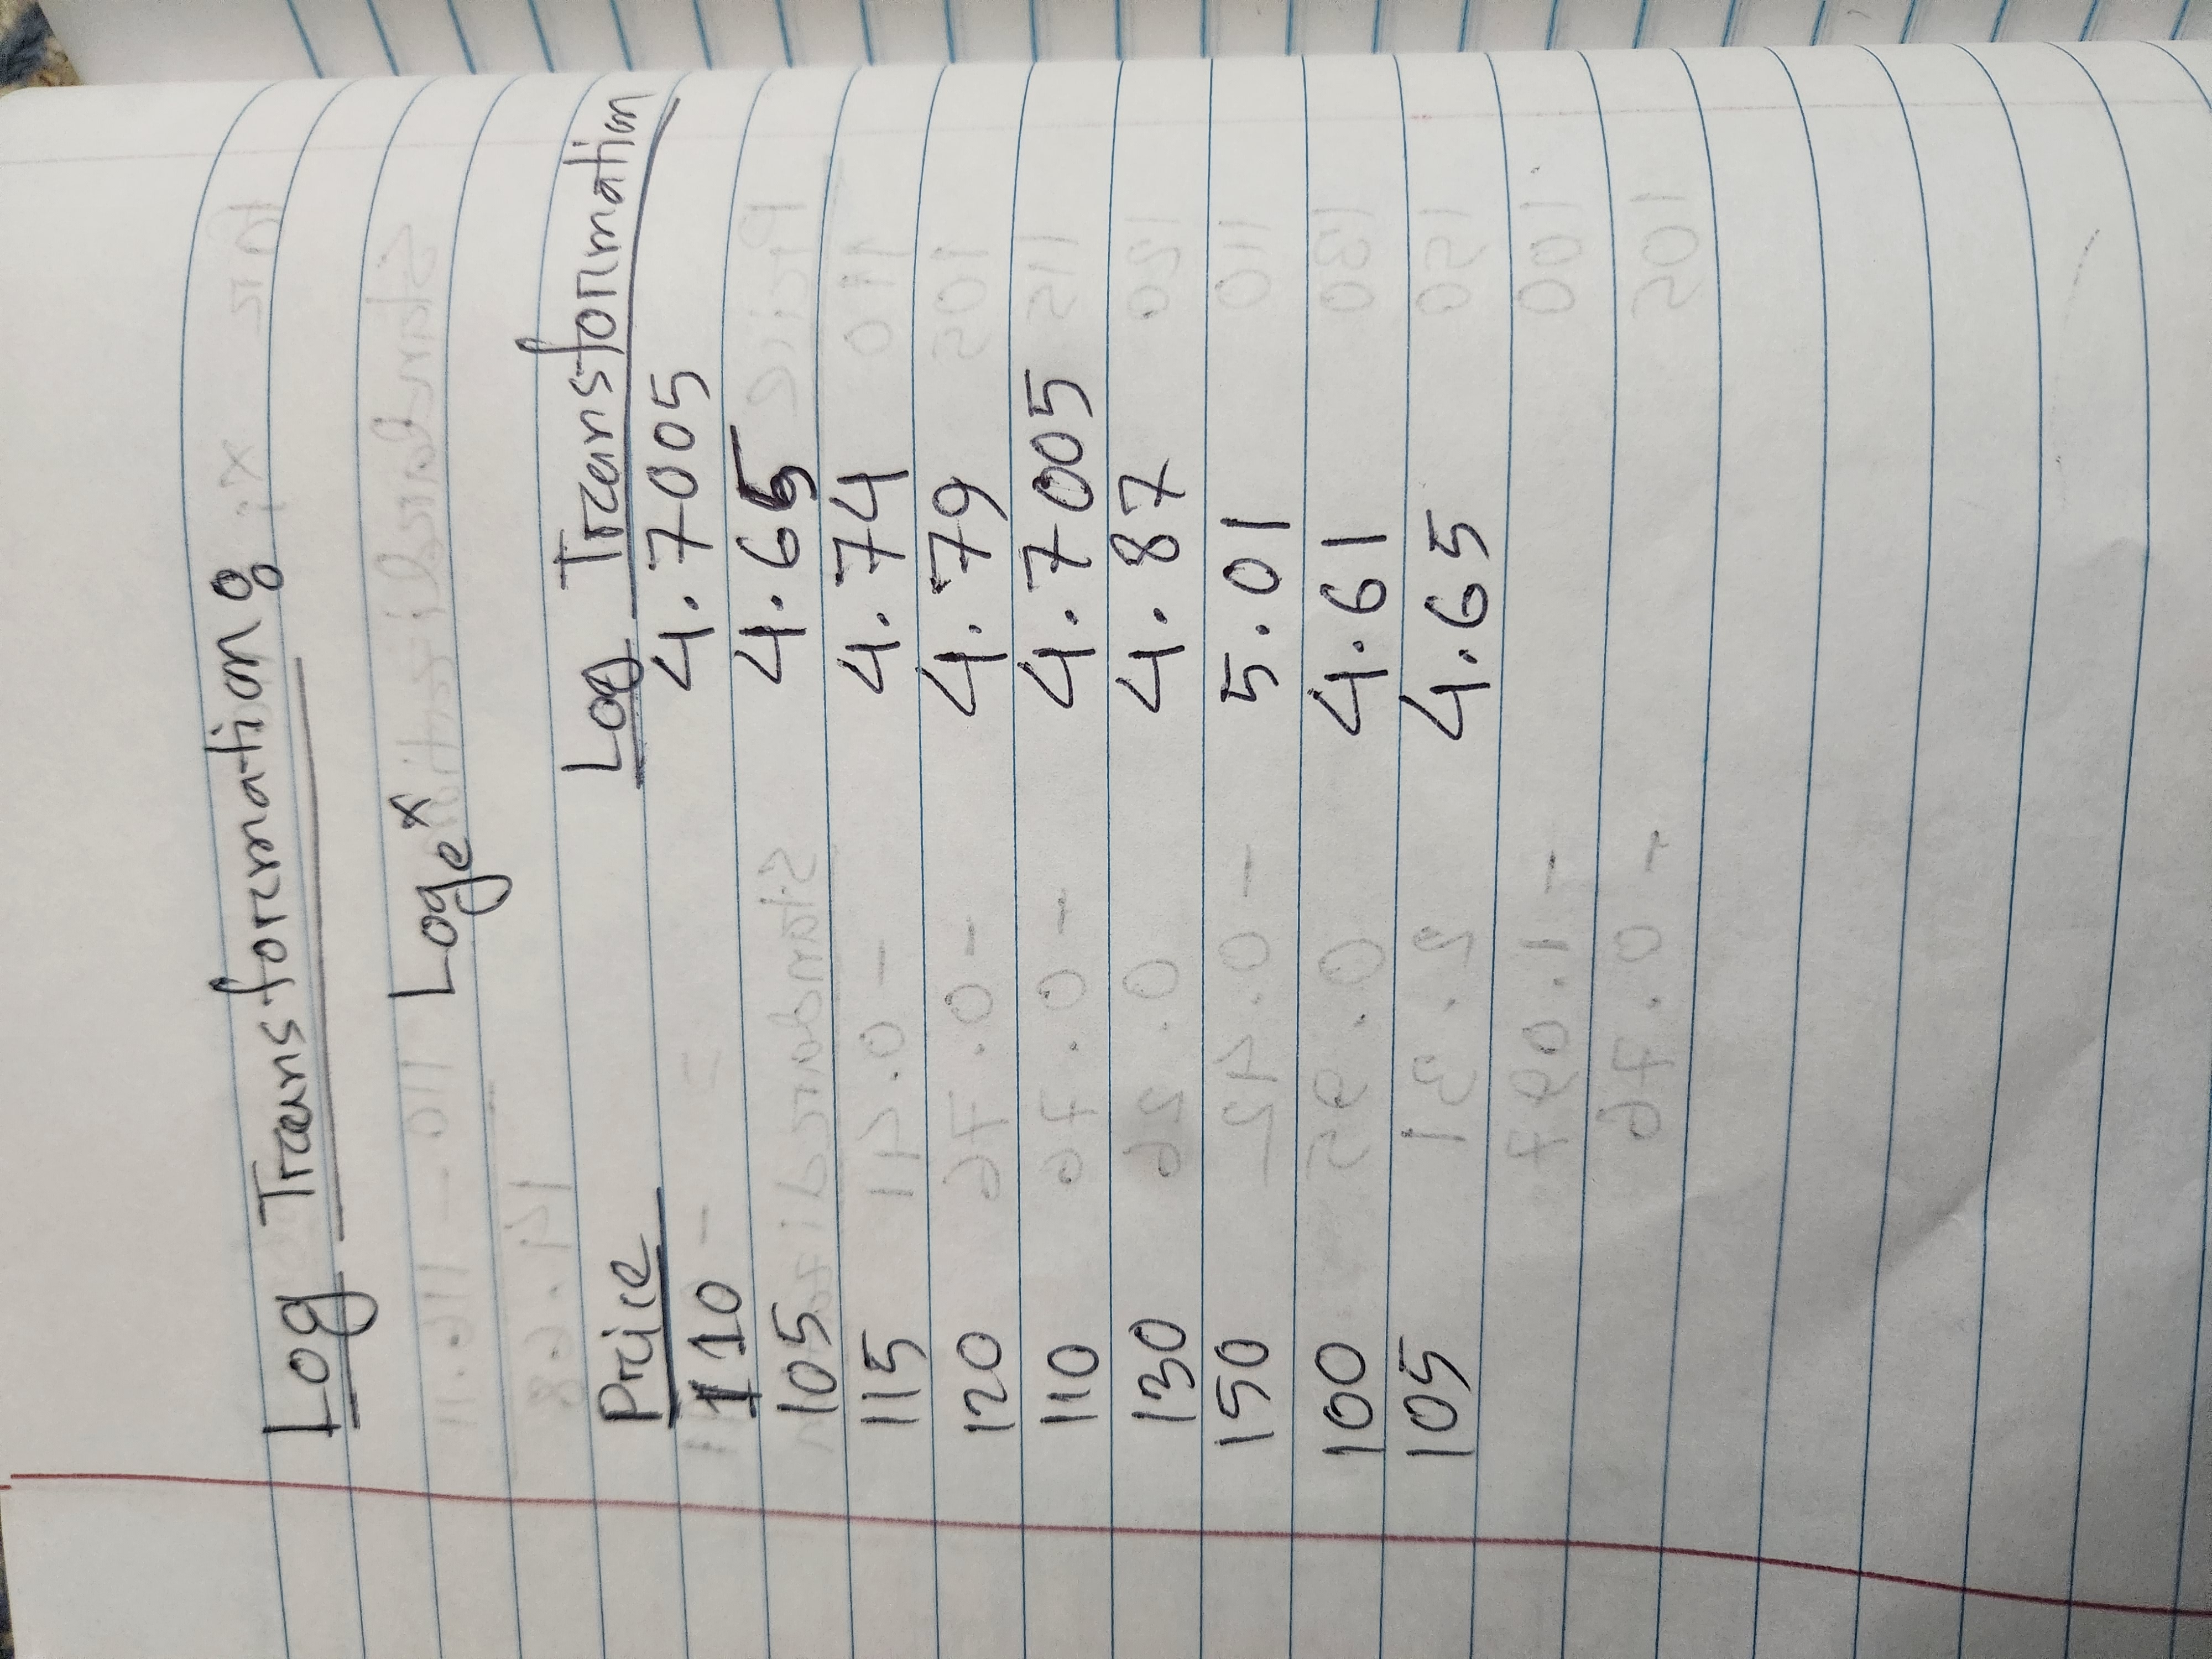 Log Transformation:
Logeˣ
Price Log Transformation
110 4.7005
105 4.65
115 4.74
120 4.79
110 4.7005
130 4.87
150 5.01
100 4.61
105 4.65